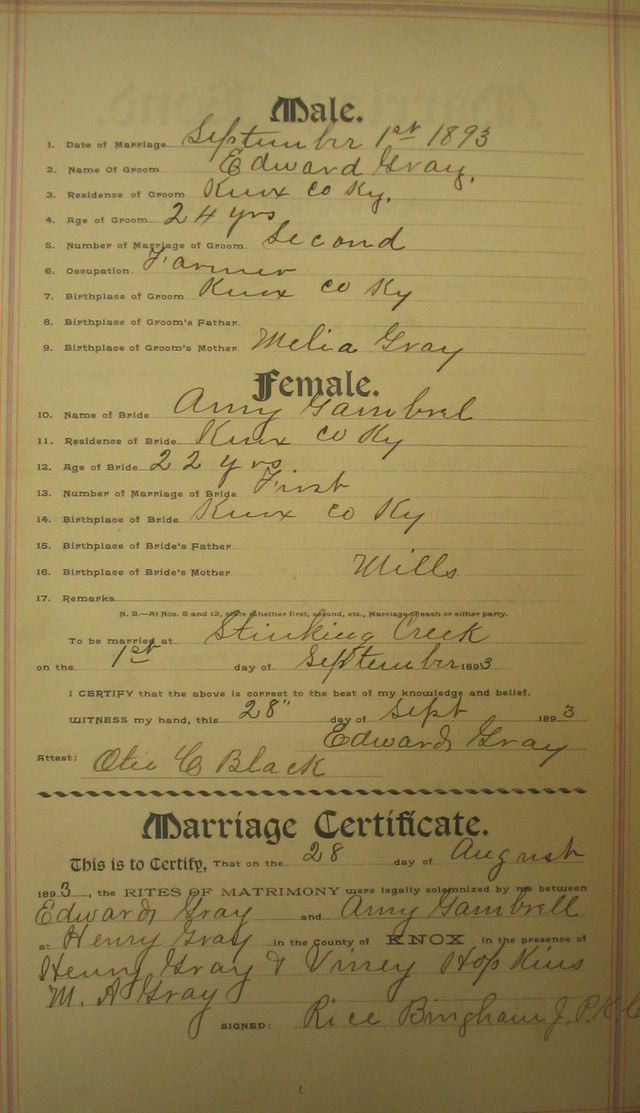 Male.
1. Date of Marriage September 1st 1893
2. Name Of Groom Edward Gray,
3. Residence of Groom Knox Co Ky,
4. Age of Groom 24 yrs
5. Number of Marriage of Groom Second
6. Occupation Farmer
7. Birthplace of Groom Knox Co Ky
8. Birthplace of Groom's Father
9. Birthplace of Groom's Mother Melia Gray
Female.
10. Name of Bride Amy Gambrel
11. Residence of Bride Knox Co Ky
12. Age of Bride 22 yrs
13. Number of Marriage of Bride First
14. Birthplace of Bride Knox Co Ky
15. Birthplace of Bride's Father
16. Birthplace of Bride's Mother Mills
17. Remarks
N. B.—At Nos. 5 and 13, state whether first, second, etc., Marriage of each or either party.
To be married at Stinking Creek
on the 1st day of September 1893
I CERTIFY that the above is correct to the best of my knowledge and belief.
WITNESS my hand, this 28" day of Sept 1893
Edward Gray
Attest: Otie C Black
Marriage Certificate.
This is to Certify, That on the 28 day of August
1893, the RITES OF MATRIMONY were legally solemnized by me between
Edward Gray and Amy Gambrell
at Henry Gray in the County of KNOX in the presence of
Henry Gray & Viney Hopkins
M. A Gray
SIGNED: Rice Bingham J. P. K. C